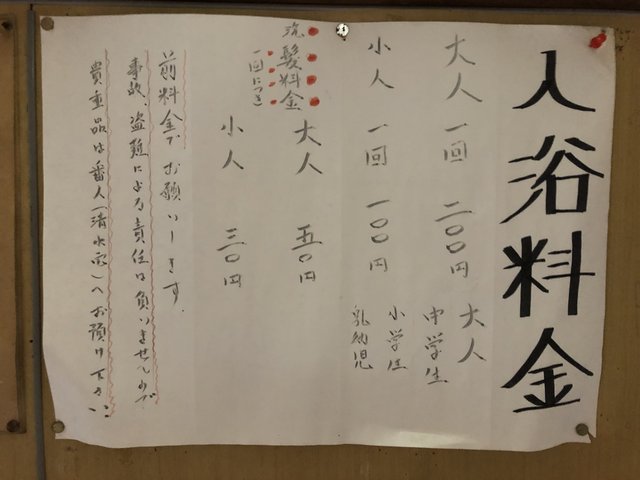 入浴料金
大人 一回 二〇〇円 大人
中学生
小人 一回 一〇〇円 小学生
乳幼児
洗髪料金
(一回につき)
大人 五〇円
小人 三〇円
前料金でお願いします.
事故、盗難による責任は負いませんので
貴重品は番人(清水家)へお預け下さい